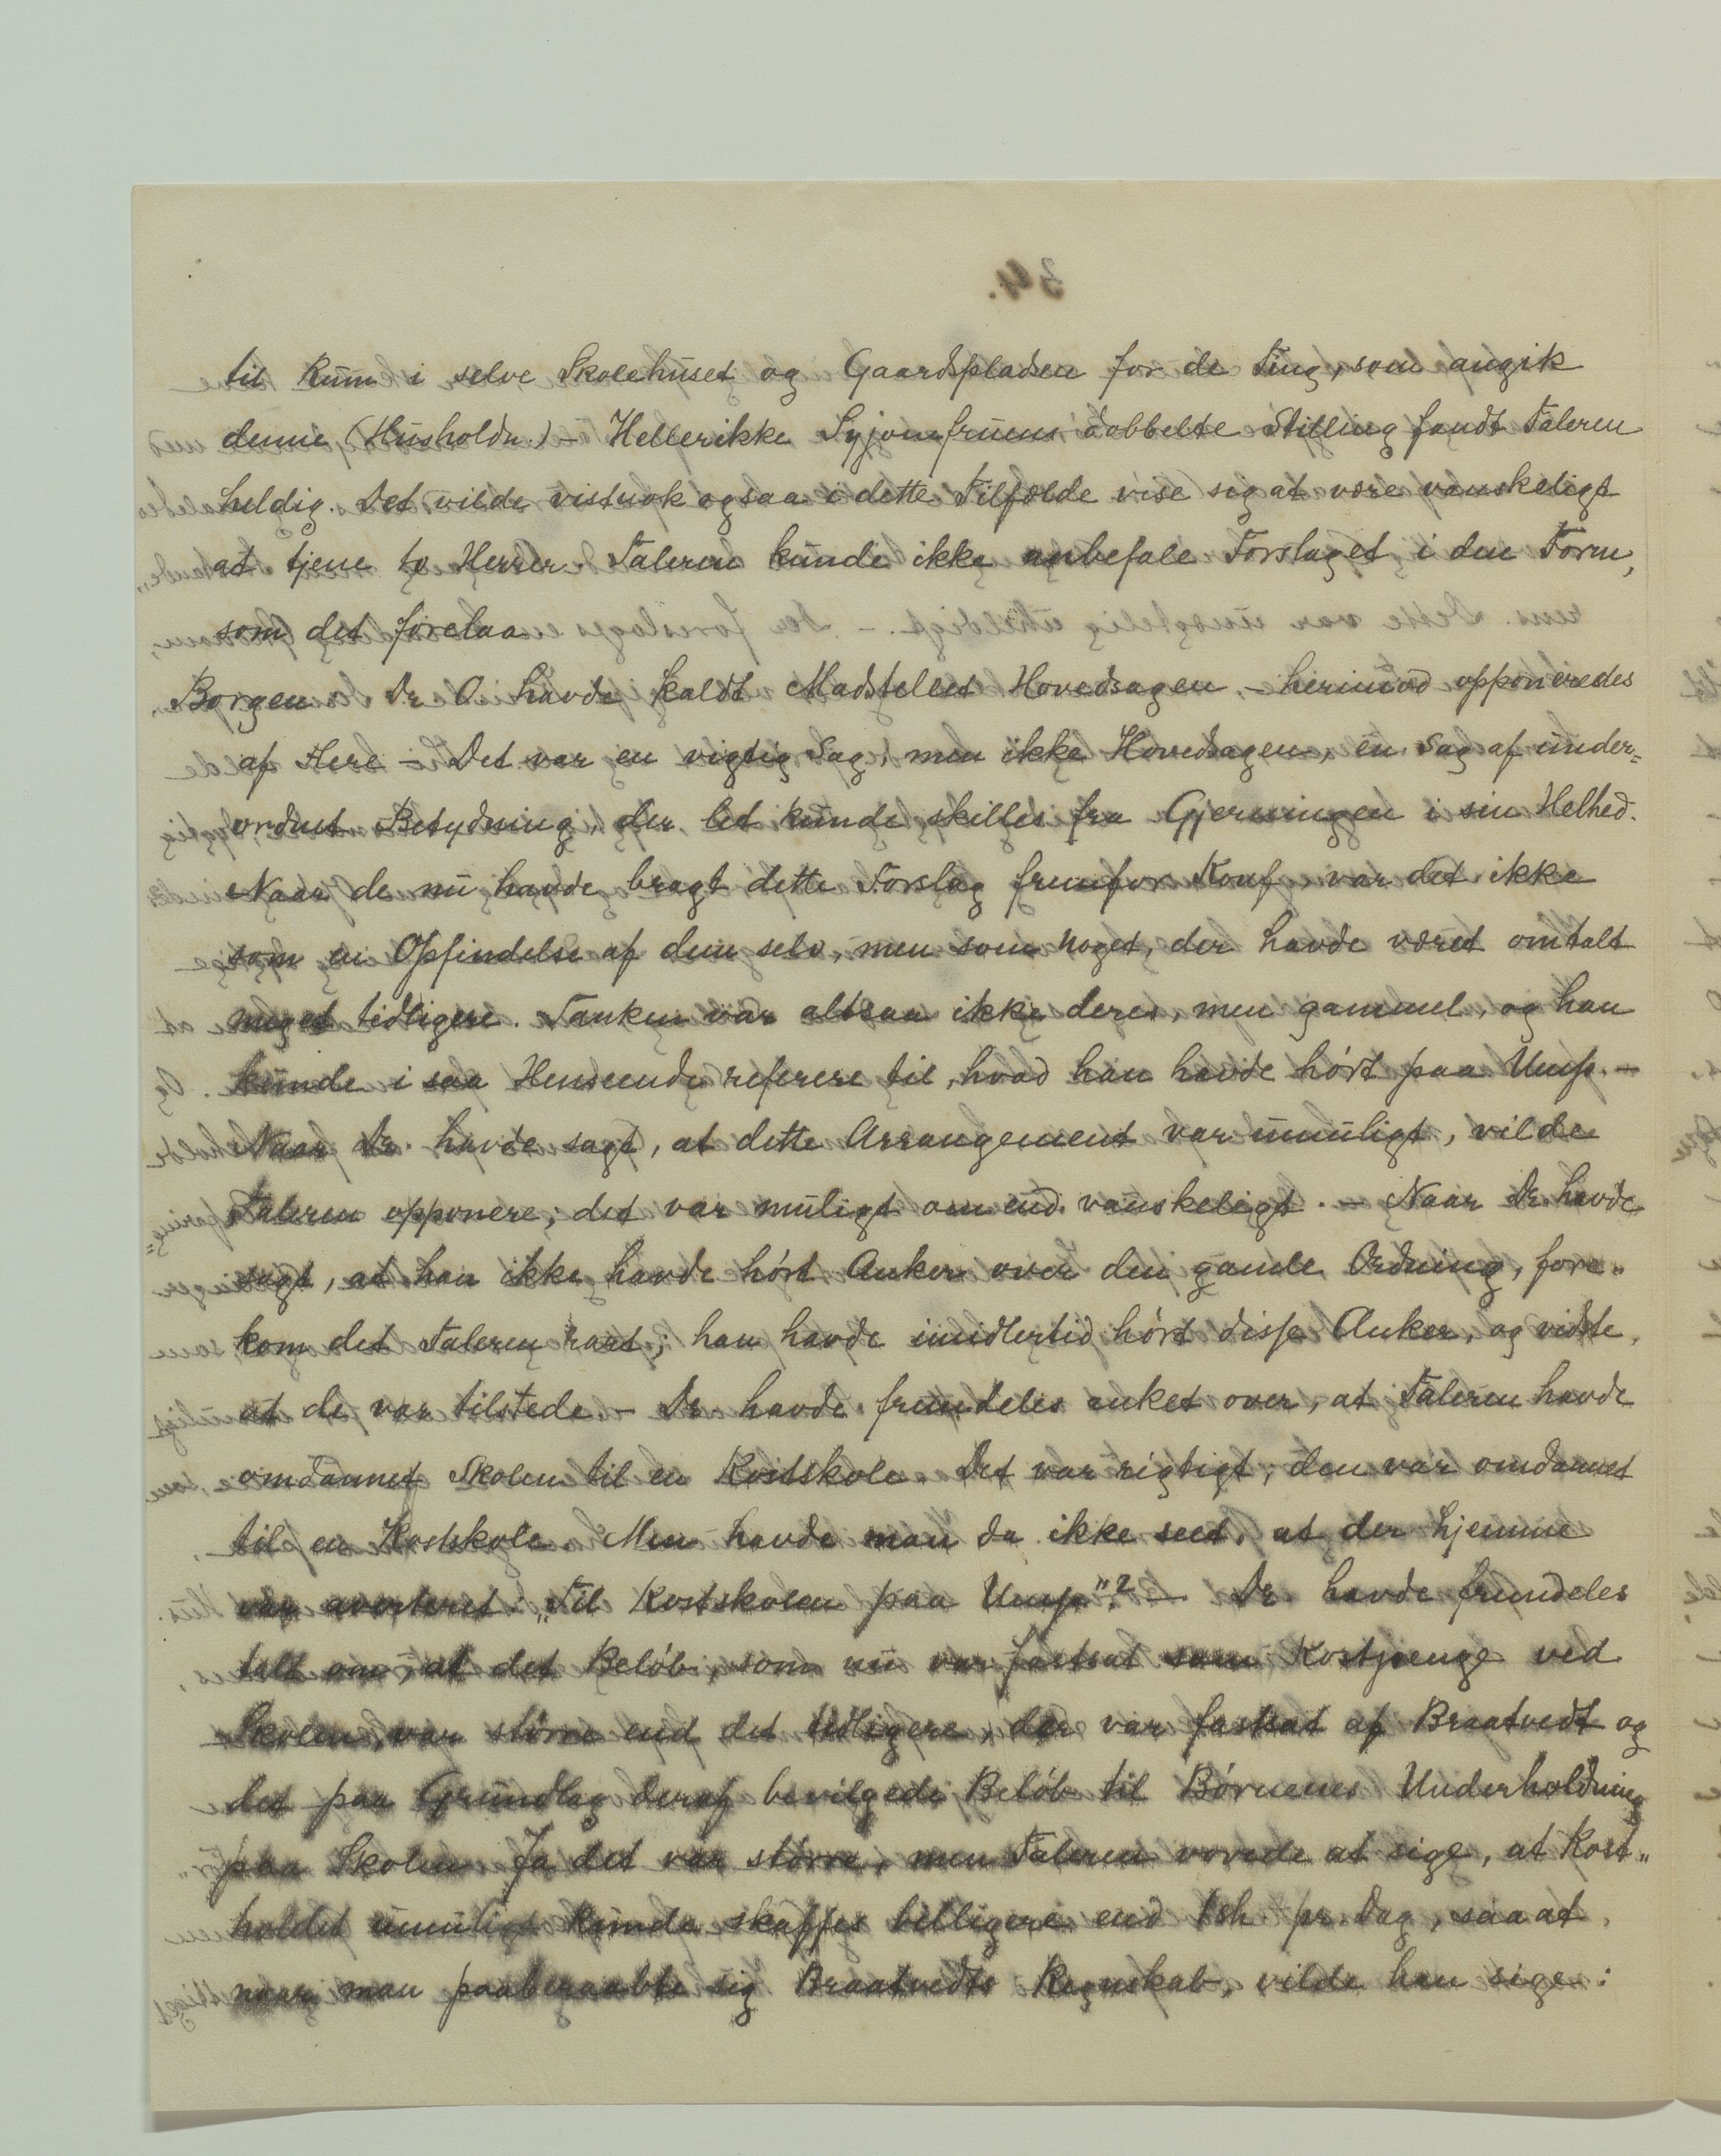 til Rum i selve Skolehuset og Gaardspladsen for de Ting, som angik
denne (Husholdn.) – Hellerikke Syjomfruens dobbelte Stilling fandt Taleren
heldig. Det vilde vistnok ogsaa i dette Tilfælde vise sig at være vanskeligt
at tjene to Herrer. Taleren kunde ikke anbefale Forslaget i den Form,
som det forelaa.
Borgen: Dr O. havde kaldt Madstellet Hovedsagen, – herimod opponeredes
af flere – Det var en vigtig Sag, men ikke Hovedsagen, en Sag af under=
ordnet Betydning, der let kunde skilles fra Gjerningen i sin Helhed.
Naar de nu havde bragt dette Forslag fremfor Konf., var det ikke
som en Opfindelse af dem selv, men som noget, der havde været omtalt
meget tidligere. Tanken var altsaa ikke deres, men gammel, og han
kunde i saa Henseende referere til, hvad han havde hört paa Ump. –
Naar Dr. havde sagt, at dette Arrangement var umuligt, vilde
Taleren opponere; det var muligt om end vanskeligt. – Naar Dr havde
sagt, at han ikke havde hört Anker over den gamle Ordning, fore„
kom det Taleren rart; han havde imidlertid hört disse Anker, og vidste,
at de var tilstede. – Dr havde fremdeles anket over, at Taleren havde
omdannet Skolen til en Kostskole. Det var rigtigt; den var omdannet
til en Kostskole. Men havde man da ikke seet, at der hjemme
var averteret: „Til Kostskolen paa Ump."? – Dr havde fremdeles
talt om, at det Belöb, som nu var fastsat som Kostpenge ved
Skolen, var större end det tidligere, der var fastsat af Braatvedt og
det paa Grundlag deraf bevilgede Belöb til Börnenes Underholdning
paa Skolen. Ja det var större, men Taleren vovede at sige, at Kost„
holdet umuligt kunde skaffes billigere end 1sh pr. Dag, saa at,
naar man paaberaabte sig Braatvedts Regnskab, vilde han sige: